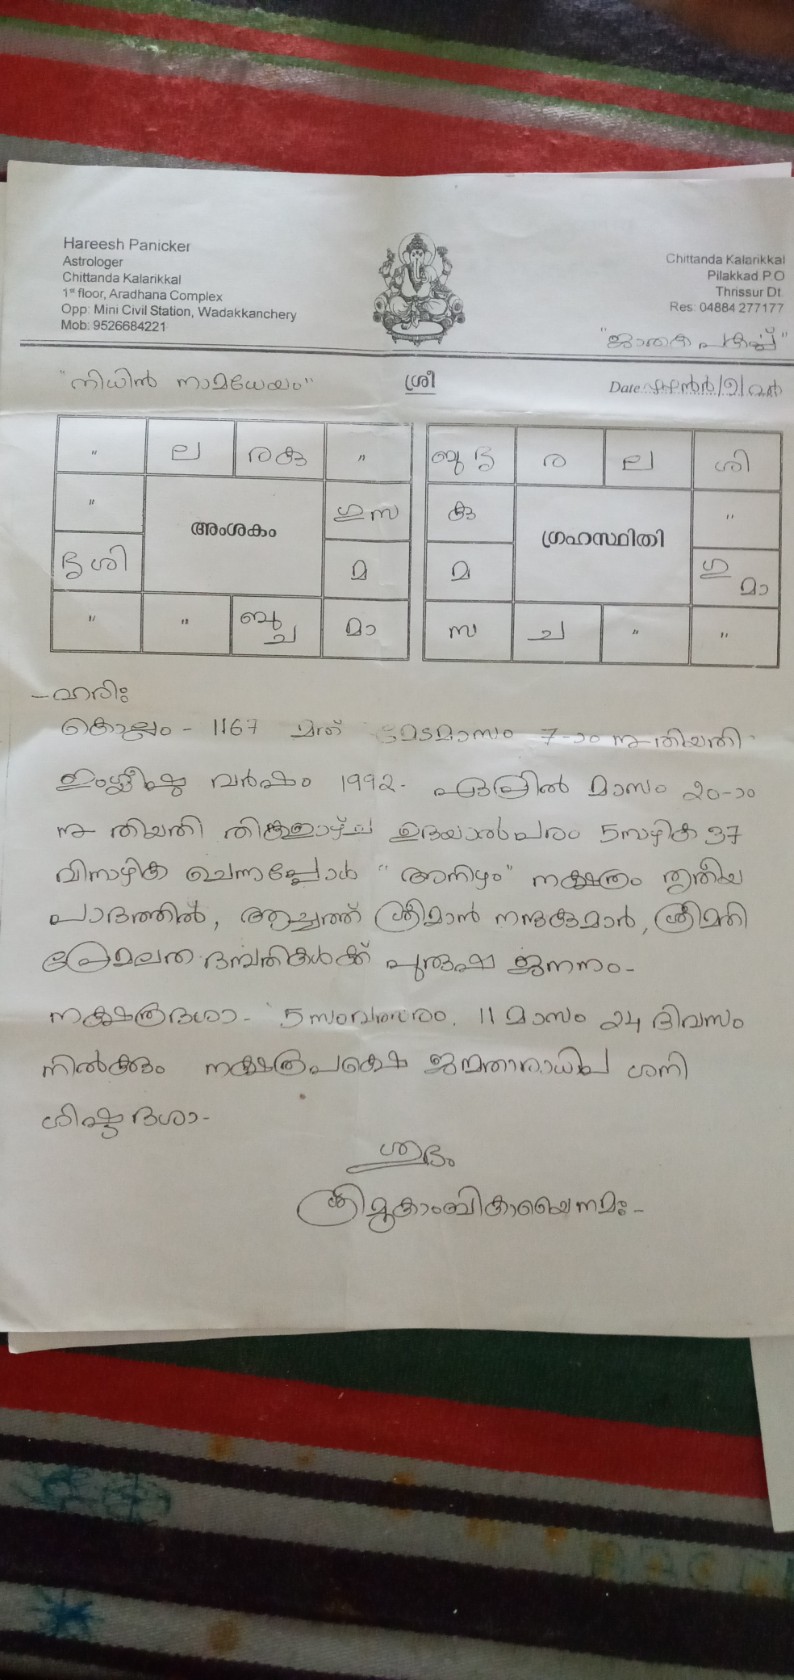 Hareesh Panicker
Astrologer
Chittanda Kalarikkal
1st floor, Aradhana Complex
Opp: Mini Civil Station, Wadakkanchery
Mob: 9526684221
Chittanda Kalarikkal
Pilakkad P.O
Thrissur Dt.
Res: 04884 277177
"ജാതക പകർപ്പ്"
"നിധിൻ നാമധേയം"
ശ്രീ
Date
" ല രകു "
" ഗുസ
അംശകം
ഭൃശി മ
" " ബുച മാ
ബുഭൃ ര ല ശി
കു "
ഗ്രഹസ്ഥിതി
മ ഗു മാ
സ ച " "
-ഹരിഃ
കൊല്ലം - 1167 മത് മേടമാസം 7-ാം നു തിയതി
ഇംഗ്ലീഷു വർഷം 1992- ഏപ്രിൽ മാസം 20-ാം
നു തിയതി തിങ്കളാഴ്ച ഉദയാൽപരം 5നാഴിക 37
വിനാഴിക ചെന്നപ്പോൾ "അനിഴം" നക്ഷത്രം തൃതീയ
പാദത്തിൽ, ശ്രീമാൻ നന്ദകുമാർ, ശ്രീമതി
പ്രേമലത ദമ്പതികൾക്ക് പുരുഷ ജനനം-
നക്ഷത്രദശാ- 5 സംവത്സരം. 11 മാസം 24 ദിവസം
നിൽക്കും നക്ഷത്രപകെ ജന്മതാരാധിപ ശനി
ശിഷ്ട ദശാ-
ശുഭം
ശ്രീമൂകാംബികായൈനമഃ-